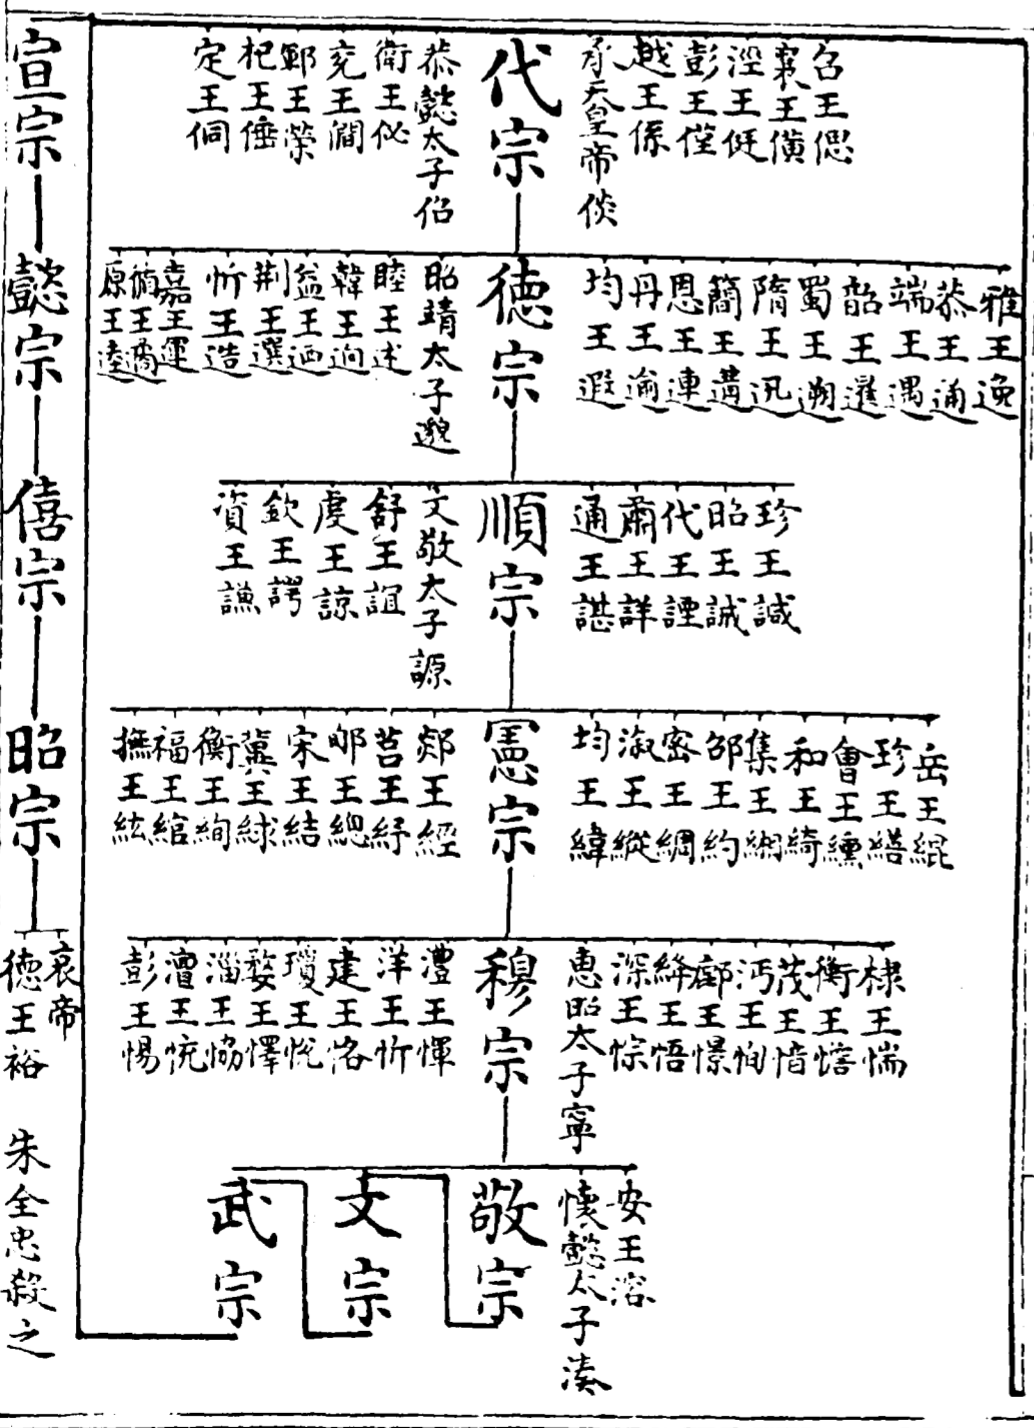 召王偲
襄王僙
涇王侹
彭王僅
越王係
承天皇帝倓
代宗
恭懿太子佋
衛王佖
兗王僩
鄆王榮
杞王倕
定王侗
雅王逸
恭王通
端王遇
韶王暹
蜀王遡
隋王迅
簡王遘
恩王連
丹王逾
均王遐
德宗
昭靖太子邈
睦王述
韓王迥
益王迺
荆王選
忻王造
嘉王運
循王遹
原王逵
珍王諴
昭王誠
代王諲
肅王詳
通王諶
順宗
文敬太子謜
舒王誼
虔王諒
欽王諤
資王謙
岳王緄
珍王繕
會王纁
和王綺
集王緗
邵王約
密王綢
淑王縱
均王緯
憲宗
郯王經
莒王紓
郇王總
宋王結
冀王絿
衡王絢
福王綰
撫王紘
棣王惴
衡王憺
茂王愔
沔王恂
鄜王憬
絳王悟
深王悰
惠昭太子寧
穆宗
澧王惲
洋王忻
建王恪
瓊王悅
婺王懌
淄王恊
彭王惕
安王溶
懷懿太子湊
敬宗
文宗
武宗
宣宗
懿宗
僖宗
昭宗
哀帝
德王裕 朱全忠殺之